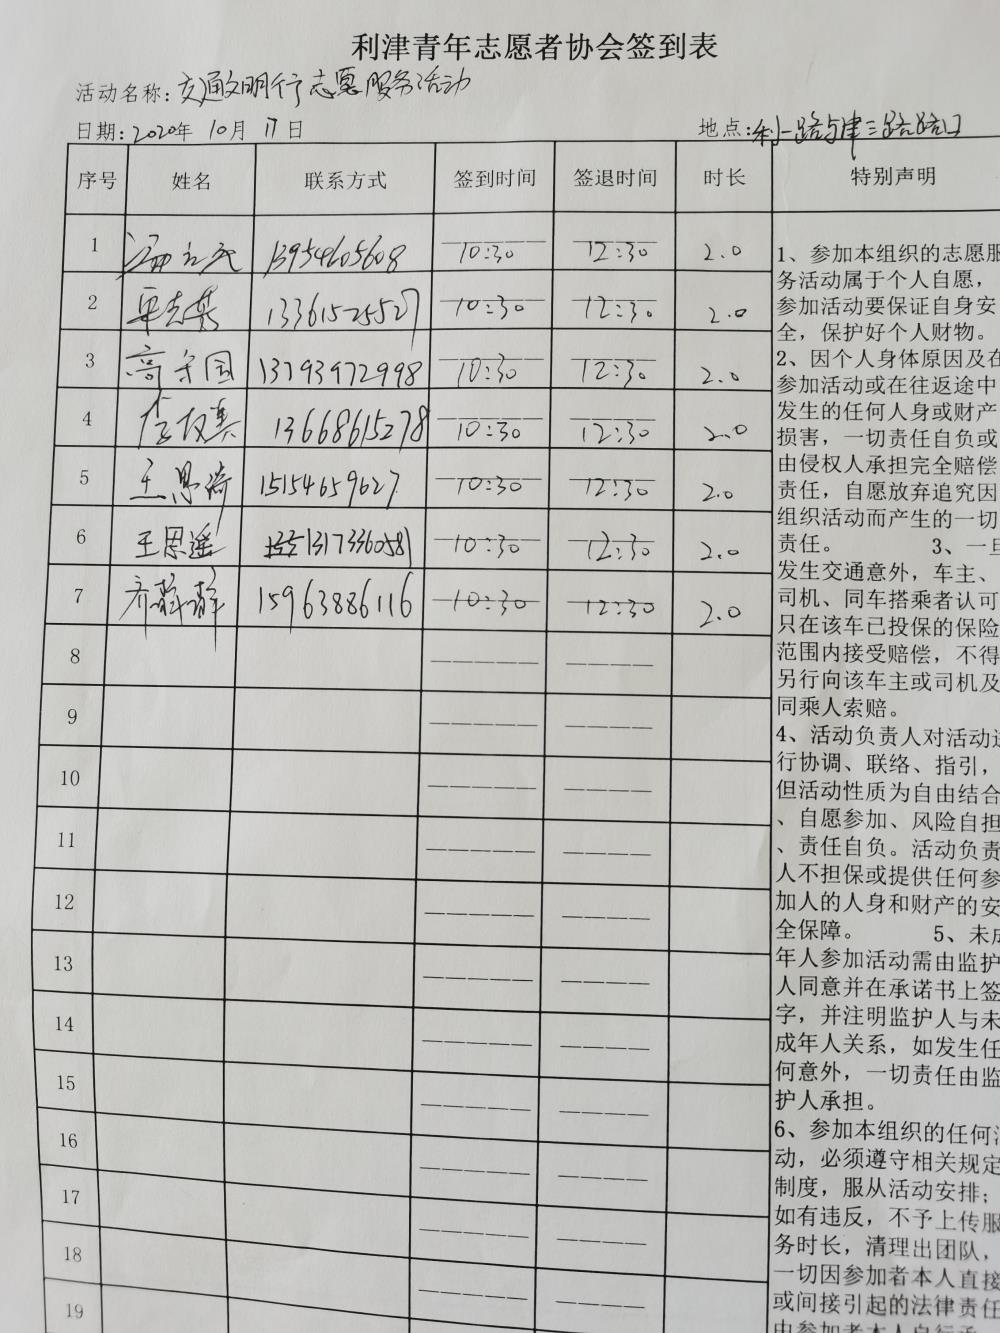 利津青年志愿者协会签到表
活动名称：交通文明行志愿服务活动
日期：2020年 10月 17日 地点：利一路与津三路路口
序号 姓名 联系方式 签到时间 签退时间 时长 特别声明
1 13954605608 10:30 12:30 2.0
2 13361525527 10:30 12:30 2.0
3 高守国 13793972998 10:30 12:30 2.0
4 13668615278 10:30 12:30 2.0
5 王思琦 15154659627 10:30 12:30 2.0
6 王思遥 13173360581 10:30 12:30 2.0
7 齐静静 15963886116 10:30 12:30 2.0
8
9
10
11
12
13
14
15
16
17
18
19
1、参加本组织的志愿服
务活动属于个人自愿，
参加活动要保证自身安
全，保护好个人财物。
2、因个人身体原因及在
参加活动或在往返途中
发生的任何人身或财产
损害，一切责任自负或
由侵权人承担完全赔偿
责任，自愿放弃追究因
组织活动而产生的一切
责任。 3、一旦
发生交通意外，车主、
司机、同车搭乘者认可
只在该车已投保的保险
范围内接受赔偿，不得
另行向该车主或司机及
同乘人索赔。
4、活动负责人对活动进
行协调、联络、指引，
但活动性质为自由结合
、自愿参加、风险自担
、责任自负。活动负责
人不担保或提供任何参
加人的人身和财产的安
全保障。 5、未成
年人参加活动需由监护
人同意并在承诺书上签
字，并注明监护人与未
成年人关系，如发生任
何意外，一切责任由监
护人承担。
6、参加本组织的任何活
动，必须遵守相关规定
制度，服从活动安排；
如有违反，不予上传服
务时长，清理出团队，
一切因参加者本人直接
或间接引起的法律责任
由参加者本人自行承